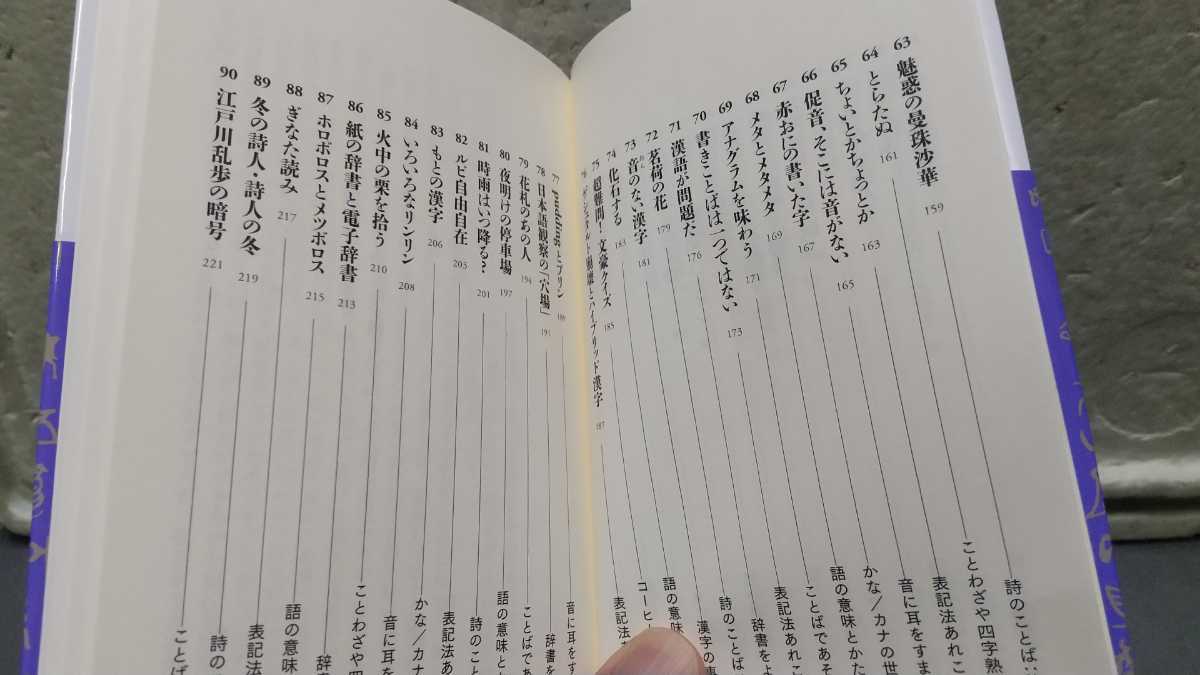 63 魅惑の曼珠沙華 159 詩のことば
64 とらたぬ 161 ことわざや四字熟
65 ちょいとかちょっとか 163 表記法あれこ
66 促音、そこには音がない 165 音に耳をすま
67 赤おにの書いた字 167 かな/カナの世
68 メタとメタメタ 169 語の意味とかた
69 アナグラムを味わう 171 ことばであそ
70 書きことばは一つではない 173 表記法あれ
71 漢語が問題だ 176 辞書をよ
72 茗荷の花 179 詩のことば
73 音のない漢字 181 漢字の
74 化石する 183 語の意味
75 超難問!文豪クイズ 185 コーヒ
76 ゲシュタルト崩壊とハイブリッド漢字 187 表記法
77 puddingとプリン 189 音に耳をす
78 日本語観察の「穴場」 191 辞書を
79 花札のあの人 194 ことばであ
80 夜明けの停車場 197 語の意味と
81 時雨はいつ降る? 201 詩のこと
82 ルビ自由自在 203 表記法あ
83 もとの漢字 206 かな/カナ
84 いろいろなリンリン 208 音に耳を
85 火中の栗を拾う 210 ことわざや四
86 紙の辞書と電子辞書 213 辞書
87 ホロボロスとメツボロス 215 語の意味
88 ぎなた読み 217 表記法
89 冬の詩人・詩人の冬 219 詩の
90 江戸川乱歩の暗号 221 ことば